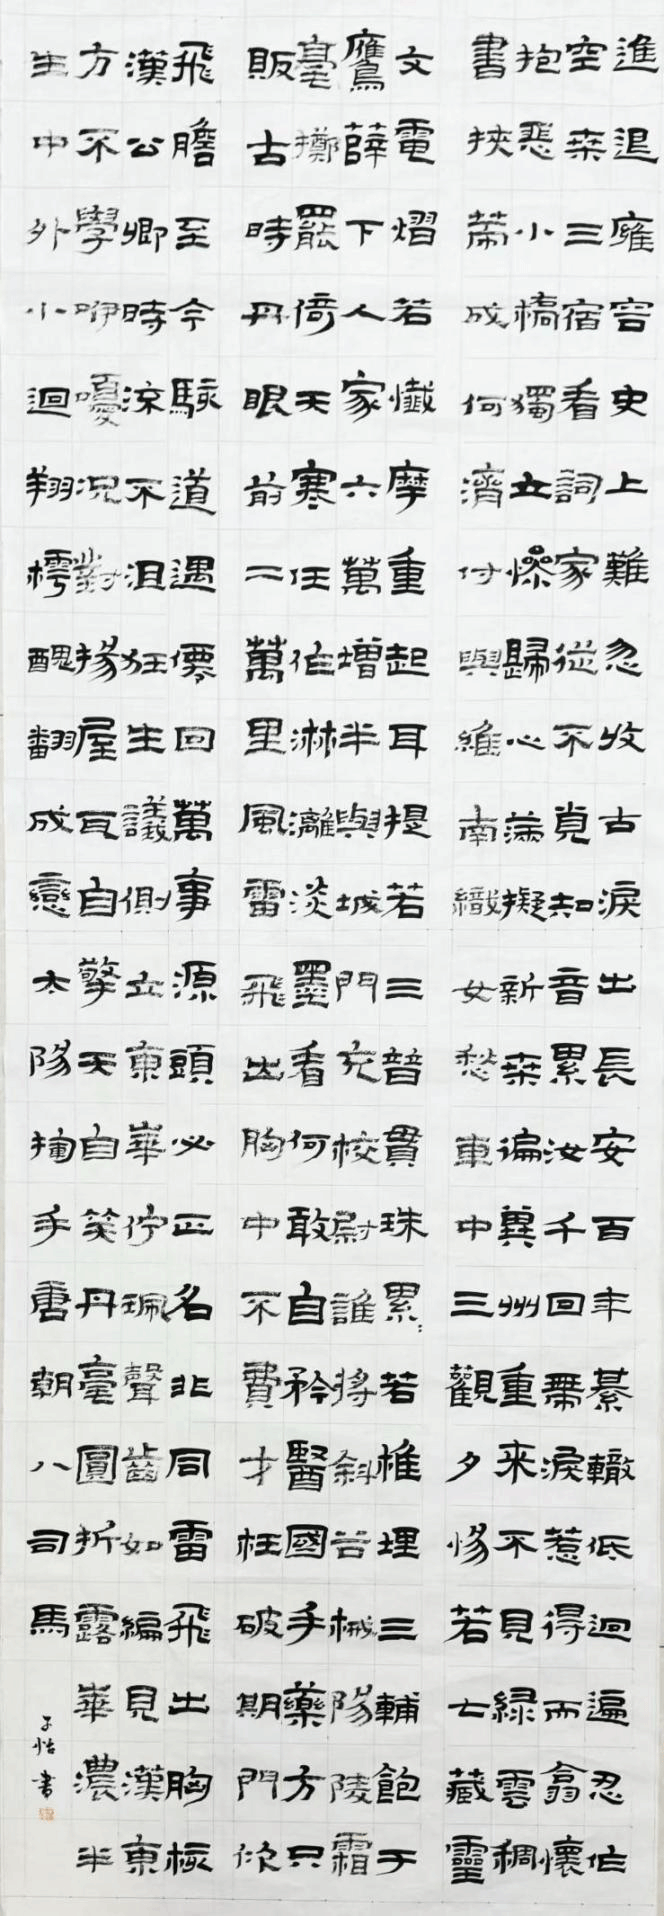 進退雍容史上難忽收古淚出長安百年綦轍低迴遍忍作
空桒三宿看詞家從不覓知音累汝千回帶淚惹得而翁懷
抱惡小橋獨立慘歸心滿擬新桒徧冀州重來不見綠雲稠
書挾策成何濟付與維南織女愁車中三觀夕惕若七藏靈
文電熠若懺摩重起耳提若三普貫珠累〻若椎埋三輔飽于
鷹薛下人家六萬增半與城門充校尉誰將斜谷械陽陵霜
毫擲罷倚天寒任作淋漓淡墨看何敢自矜醫國手藥方只
販古時丹眼前二萬里風雷飛出胸中不費才枉破期門佽
飛膽至今駭道遇僊回萬事源頭必正名非同雷飛出胸極
漢公卿時流不沮狂生議側立東華佇珮聲齒如編見漢東
方不學咿嚘況對揚屋瓦自擎天自笑丹毫圓折露華濃半
生中外小迴翔樗醜翻成戀太陽掬手唐朝八司馬
子怡書